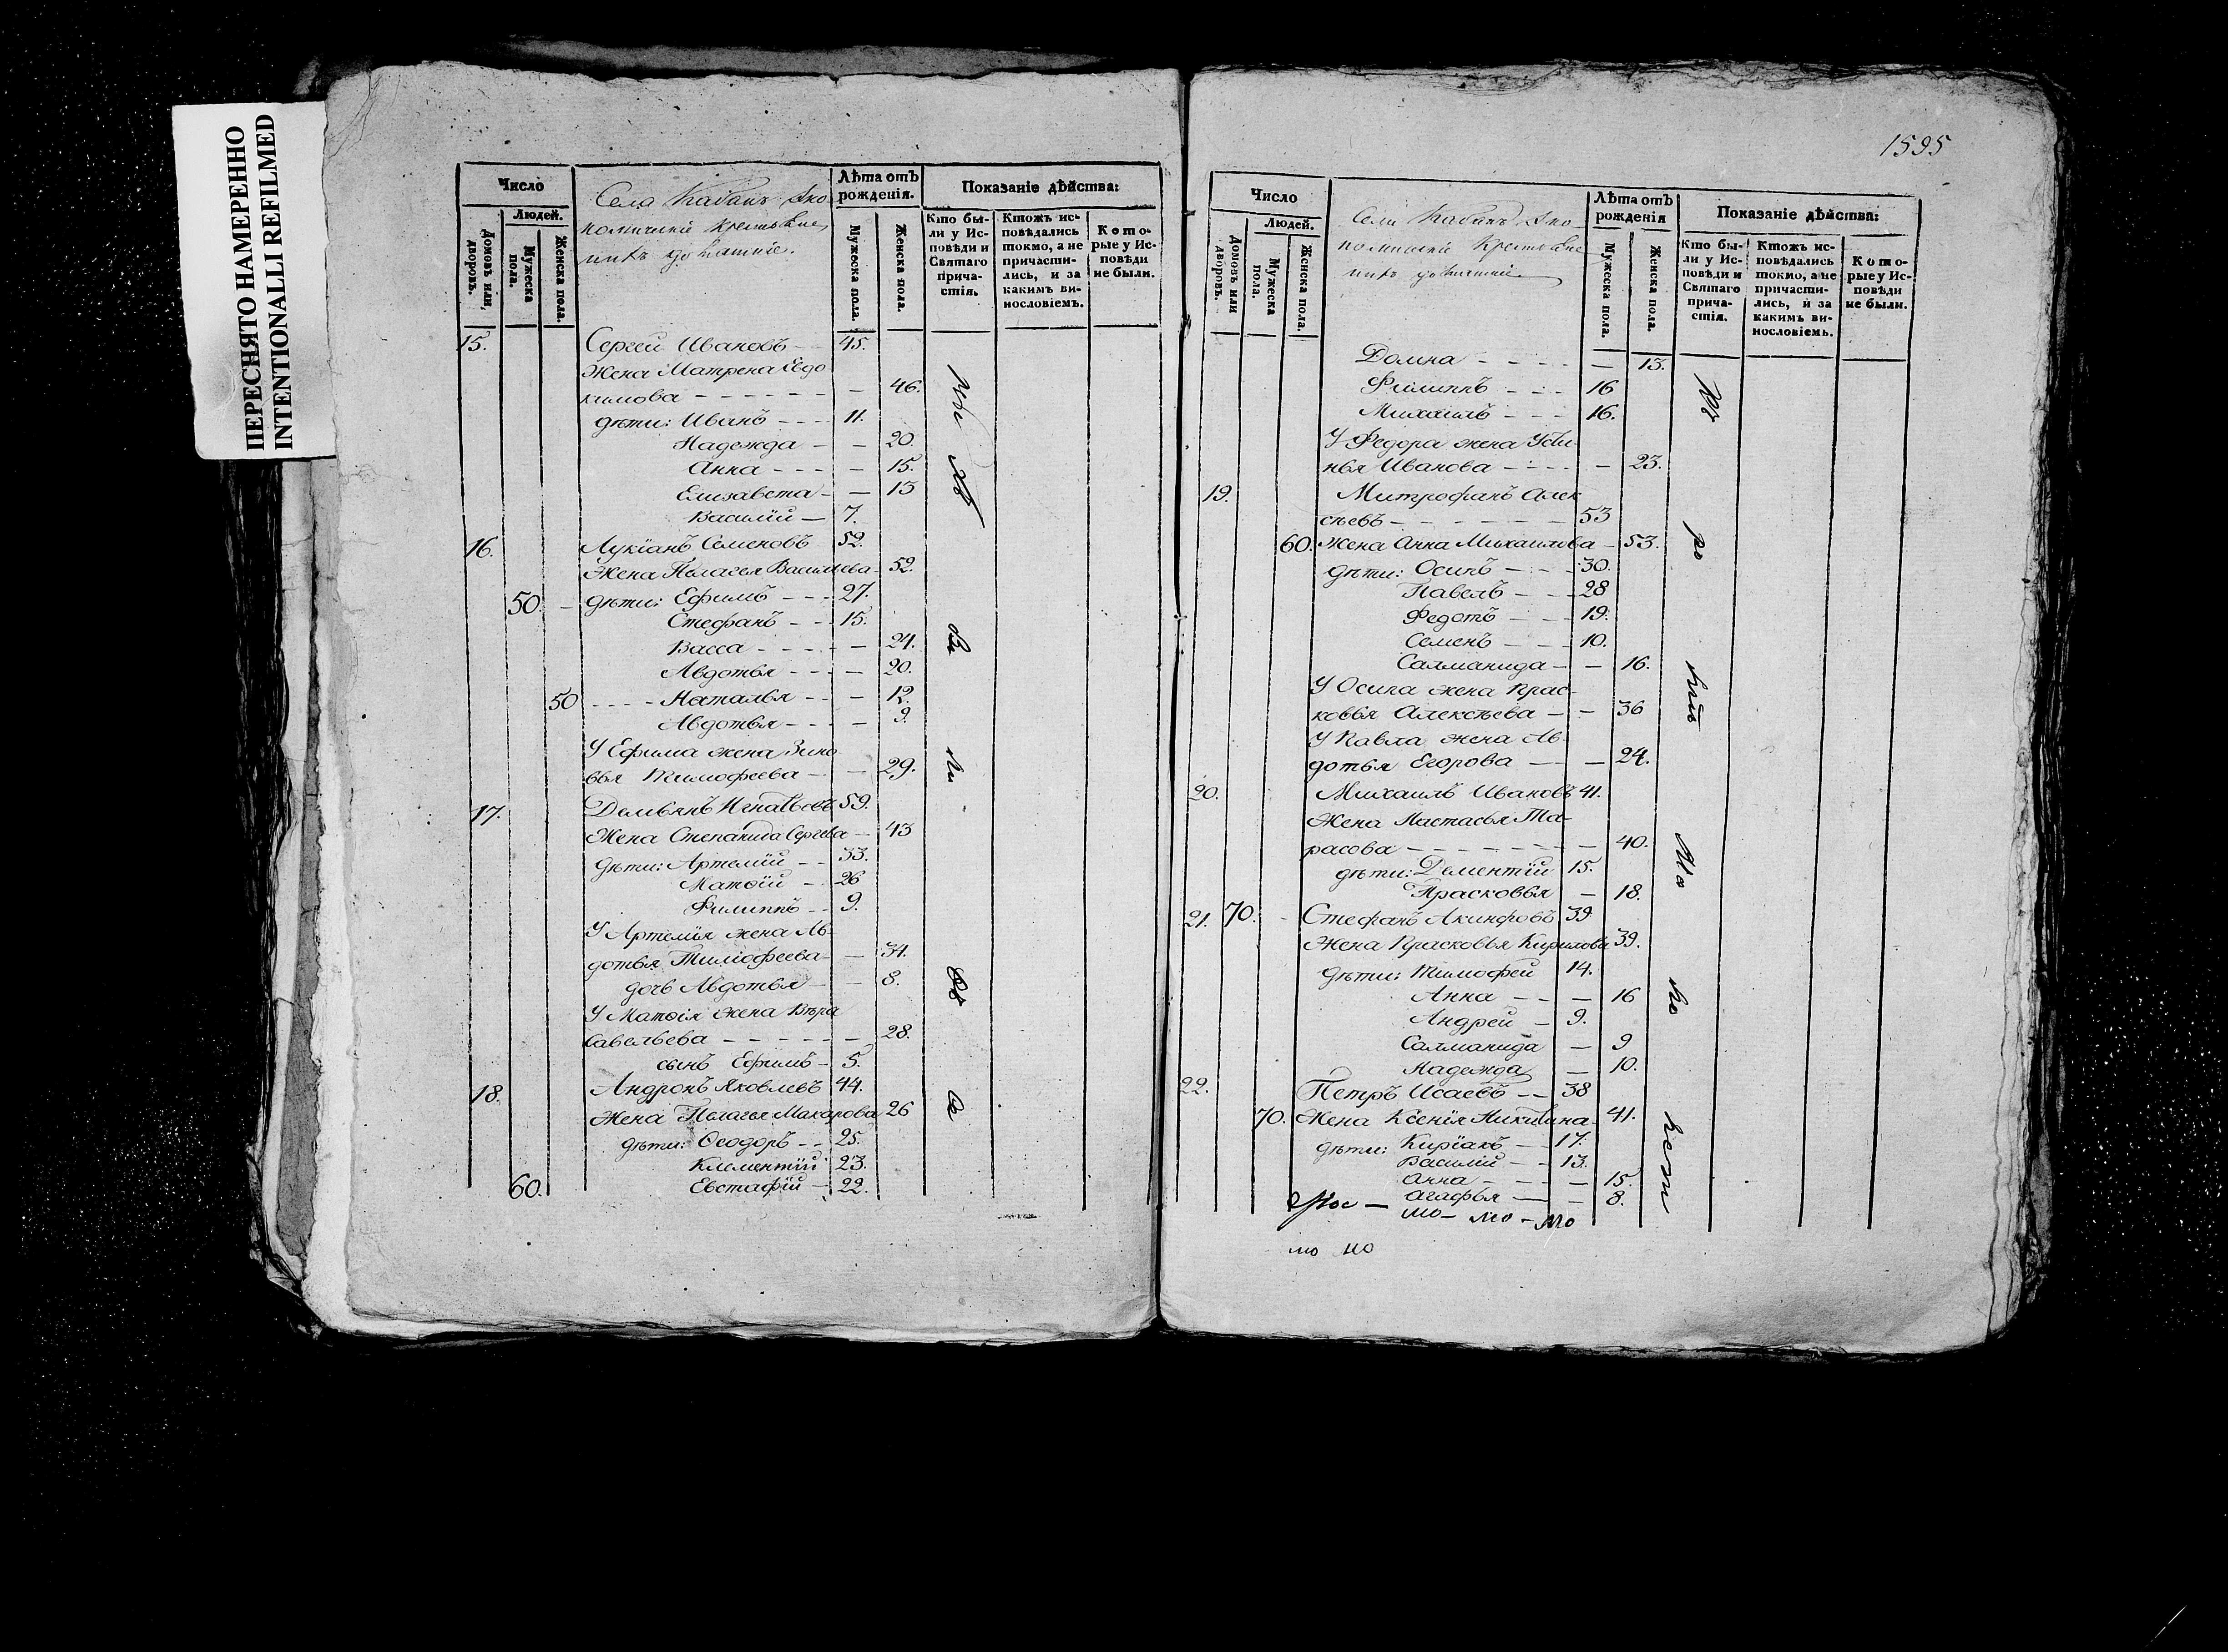 ПЕРЕСНЯТО НАМЕРЕННО
INTENTIONALLI REFILMED
Число
Людей.
Домовъ или, дворовъ.
Мужеска пола.
Женска пола.
Села
Лѣта отъ рожденія.
Мужеска пола.
Женска пола.
Показаніе дѣйства:
Кто бы-
ли у Ис-
повѣди и
Святаго
прича-
стія.
Ктожъ ис-
повѣдались
токмо, а не
причасти-
лись, и за
какимъ ви-
нословіемъ.
Кото-
рые у Ис-
повѣди
не были.
15. Сергей Ивановъ - - 45.
Жена Матрена Евдо
кимова - - - - - - - 46.
дѣти: Иванъ - - - - 11.
Надежда - - 20.
Анна - - - - - 15.
Елизавета - - 13
Василій - 7.
16. Лукіанъ Семеновъ 52.
Жена Пелагья Васильева - 52.
50. - дѣти: Ефимъ - - - 27.
Стефанъ - - - 15.
Васса - - - - - 24.
Авдотья - - - - 20.
50 - - - - Наталья - - - 12.
Авдотья - - - - 9.
У Ефима жена Зино
вья Тимофеева - - - 29.
17. Демьянъ Игнатьевъ 59.
Жена Степанида Сергева - 43
дѣти: Артемій - - 33.
Матѳій - - 26
Филиппъ - - 9.
У Артемія жена Ав-
дотья Тимофеева - - 31.
дочь Авдотья - - 8.
У Матѳія жена Вѣра
Савельева - - - - - - 28.
сынъ Ефимъ - 5.
18. Андронъ Яковлевъ 44.
Жена Пелагья Макарова 26
дѣти: Ѳеодоръ - - 25.
Климентій 23.
60. Евстафій - 22.
1595
Число
Людей.
Домовъ или дворовъ.
Мужеска пола.
Женска пола.
Лѣта отъ рожденія
Мужеска пола.
Женска пола.
Показаніе дѣйства:
Кто бы-
ли у Ис-
повѣди и
Святаго
прича-
стія.
Ктожъ ис-
повѣдались
токмо, а не
причасти-
лись, и за
какимъ ви-
нословіемъ.
Кото-
рые у Ис-
повѣди
не были.
Домна - - - - - 13.
Филиппъ - - - 16
Михаилъ - - - 16.
У Федора жена Усти-
нья Иванова - - - - - 23.
19. Митрофанъ Алек
сѣевъ - - - - - - - 53
60. Жена Анна Михаилова - 53.
дѣти: Осипъ - - - 30.
Павелъ - - - 28
Федотъ - - - 19.
Семенъ - - - 10.
Саломанида - - 16.
У Осипа жена Прас-
ковья Алексѣева - - 36
У Павла жена Ав-
дотья Егорова - - - 24.
20. Михаилъ Ивановъ 41.
Жена Настасья Та-
расова - - - - - - - - 40.
дѣти: Дементій 15.
Прасковья - 18.
21. 70. - Стефанъ Акинфовъ 39
Жена Прасковья Кирилова 39.
дѣти: Тимофей 14.
Анна - - - 16
Андрей - 9.
Саломанида - 9
Надежда - 10.
22. Петръ Исаевъ - - 38
70. Жена Ксенія Никитина - 41.
дѣти: Киріакъ - 17.
Василій - - 13.
Анна - - - - 15.
Агафья - - 8.
мо - мо - мо
мо но